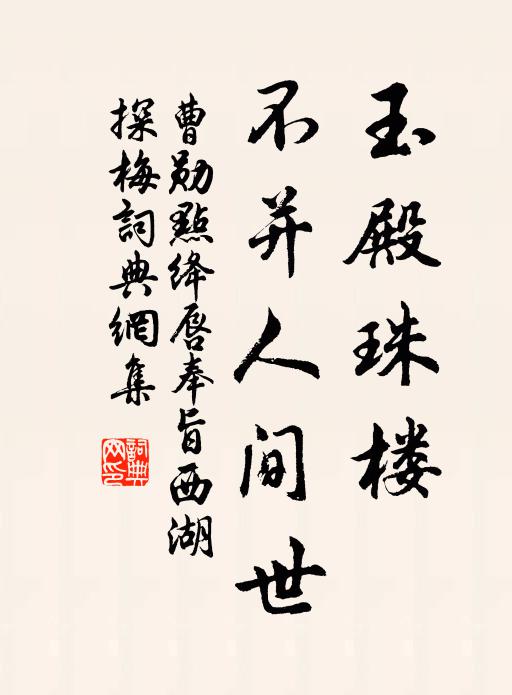 玉殿珠楼
不并人间世
曹勋點绛唇奉旨西湖
探梅詞典網集
詞典網印